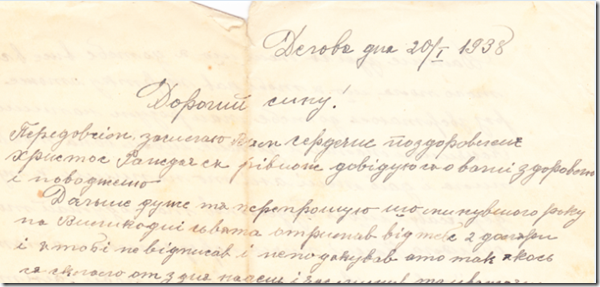 Дегова дня 20/I 1938
Дорогий сину!
Передовсім засилаю Вам сердечне поздоровлене
Христос Раждаєся рівнож довідуюся о ваші здоровлю
і поводженю
Дачуже та перепрошую що минувшого року
на Великодні свята отримав від тебе 2 доляри
і я тобі не відписав і неподякував ато так якось